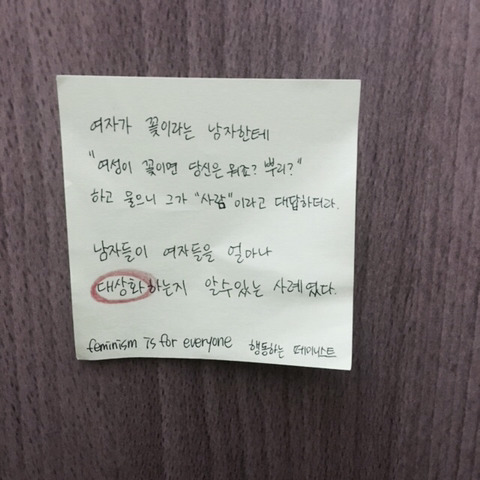 여자가 꽃이라는 남자한테
"여성이 꽃이면 당신은 뭐죠? 뿌리?"
하고 물으니 그가 "사람"이라고 대답하더라.
남자들이 여자들을 얼마나
대상화하는지 알수있는 사례였다.
feminism is for everyone 행동하는 페미니스트